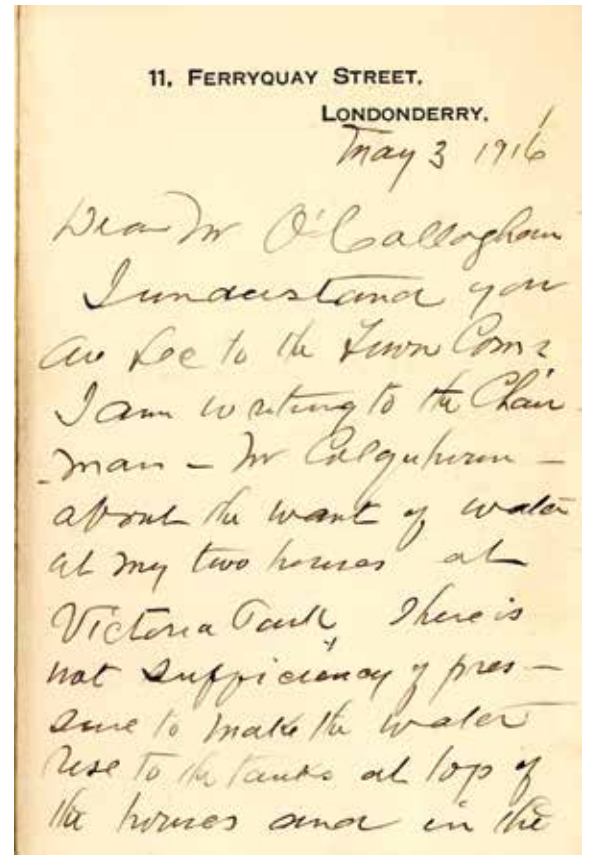 11, FERRYQUAY STREET.
LONDONDERRY.
May 3 1916
Dear Mr O'Callaghan
I understand you
are Sec to the Town Comrs
I am writing to the Chair
-man - Mr Colquhoun -
about the want of water
at my two houses at
Victoria Park, There is
not sufficiency of pres-
sure to make the water
rise to the tanks at top of
the houses and in the